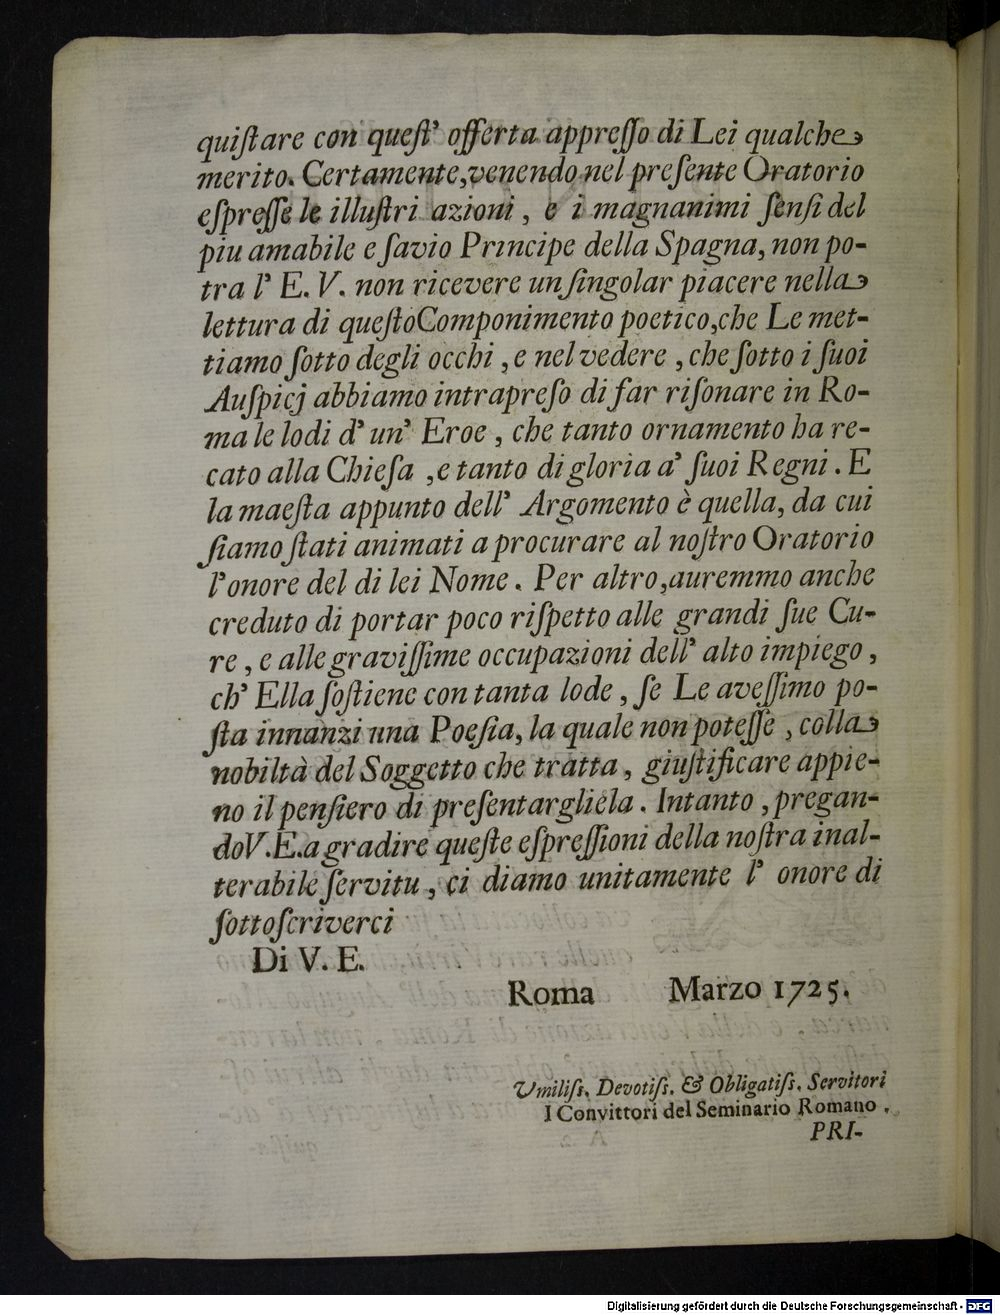 quiſtare con queſt' offerta appreſſo di Lei qualche
merito. Certamente,venendo nel preſente Oratorio
eſpreſſe le illuſtri azioni , e i magnanimi ſenſi del
piu amabile e ſavio Principe della Spagna, non po-
tra l' E. V. non ricevere un ſingolar piacere nella
lettura di queſto Componimento poetico,che Le met-
tiamo ſotto degli occhi , e nel vedere , che ſotto i ſuoi
Auſpicj abbiamo intrapreſo di far riſonare in Ro-
ma le lodi d' un' Eroe , che tanto ornamento ha re-
cato alla Chieſa , e tanto di gloria a' ſuoi Regni . E
la maeſta appunto dell' Argomento è quella, da cui
ſiamo ſtati animati a procurare al noſtro Oratorio
l'onore del di lei Nome . Per altro,auremmo anche
creduto di portar poco riſpetto alle grandi ſue Cu-
re , e alle graviſſime occupazioni dell' alto impiego ,
ch' Ella ſoſtiene con tanta lode , ſe Le aveſſimo po-
ſta innanzi una Poeſia, la quale non poteſſe , colla
nobiltà del Soggetto che tratta , giuſtificare appie-
no il penſiero di preſentargliela . Intanto , pregan-
do V.E. a gradire queſte eſpreſſioni della noſtra inal-
terabile ſervitu , ci diamo unitamente l' onore di
ſottoſcriverci
Di V. E.
Roma Marzo 1725.
Umiliſs. Devotiſs. & Obligatiſs. Servitori
I Convittori del Seminario Romano .
PRI-
Digitalisierung gefördert durch die Deutsche Forschungsgemeinschaft - DFG